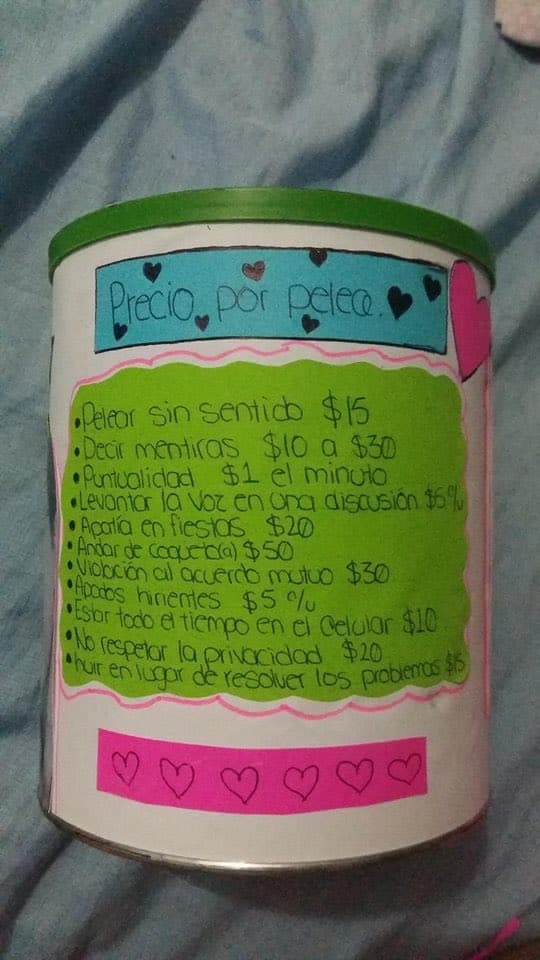 Precio por pelea.
•Pelear sin sentido $15
•Decir mentiras $10 a $30
•Puntualidad $1 el minuto
•Levantar la Voz en una discusión $5 %
•Apatía en fiestas $20
•Andar de coqueto(a) $50
•Violación al acuerdo mutuo $30
•Apodos hirientes $5 %
•Estar todo el tiempo en el Celular $10
•No respetar la privacidad $20
•huir en lugar de resolver los problemas $15